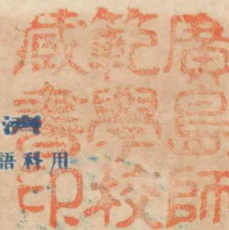 廣島師
範學校
蔵書印
語科用